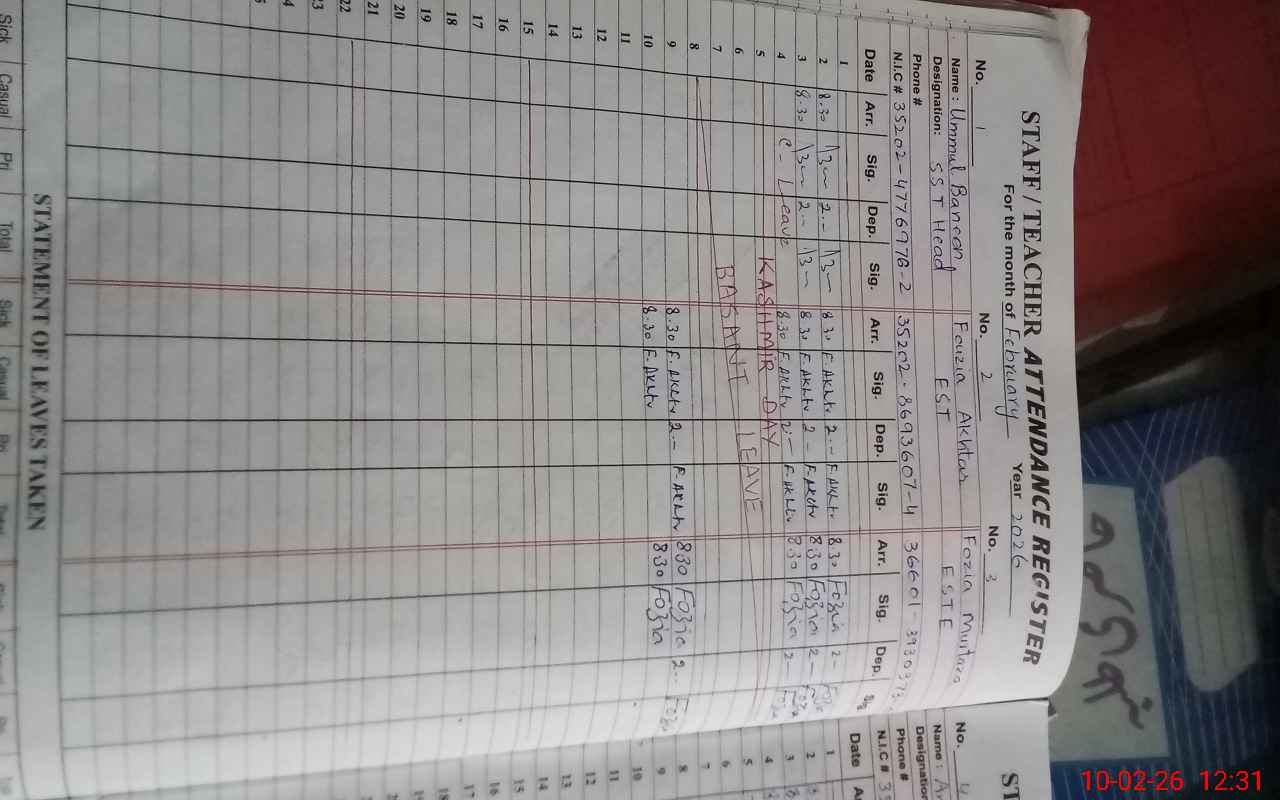 STAFF / TEACHER ATTENDANCE REGISTER
For the month of February Year 2026
No. 1 No. 2 No. 3
Name: Ummul Baneen Fouzia Akhtar Fozia
Designation: SST Head EST ESTE
Phone #
N.I.C # 35202-4776978-2 35202-8693607-4 36601-3930373
Date Arr. Sig. Dep. Sig. Arr. Sig. Dep. Sig. Arr. Sig. Dep.
1
2 8.30 2.- 8.30 F.Akhtr 2.- F.Akhtr 8.30 Fozia 2-
3 8.30 2.- 8.30 F.Akhtr 2- F.Akhtr 830 Fozia 2-
4 C-Leave 8.30 F.Akhtr 2.- F.Akhtr 830 Fozia 2-
5 KASHMIR DAY
6 BASANT LEAVE
7
8
9 8.30 F.Akhtr 2.- F.Akhtr 830 Fozia 2..
10 8.30 F.Akhtr 830 Fozia
11
12
13
14
15
16
17
18
19
20
21
22
23
STATEMENT OF LEAVES TAKEN
Sick Casual Pri Total Sick Casual
No. 4
Name:
Designation
Phone #
N.I.C #
Date
1
2
3
4
5
6
7
8
9
10
11
12
13
14
15
16
17
10-02-26 12:31